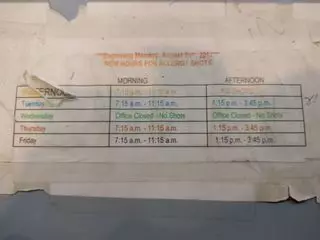 Beginning Monday, August
NEW HOURS FOR ALLERGY SHOTS
MORNING AFTERNOON
TERNO
Tuesday 7:15 a.m. - 11:15 a.m. 1:15 p.m. - 3:45 p.m.
Wednesday Office Closed - No Shots Office Closed - No Shots
Thursday 7:15 a.m. - 11:15 a.m. 1:15 p.m. - 3:45 p.m.
Friday 7:15 a.m. - 11:15 a.m. 1:15 p.m. - 3:45 p.m.